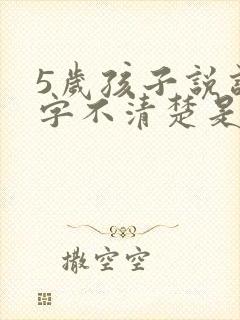 5歲孩子說
字不清楚是
撒空空